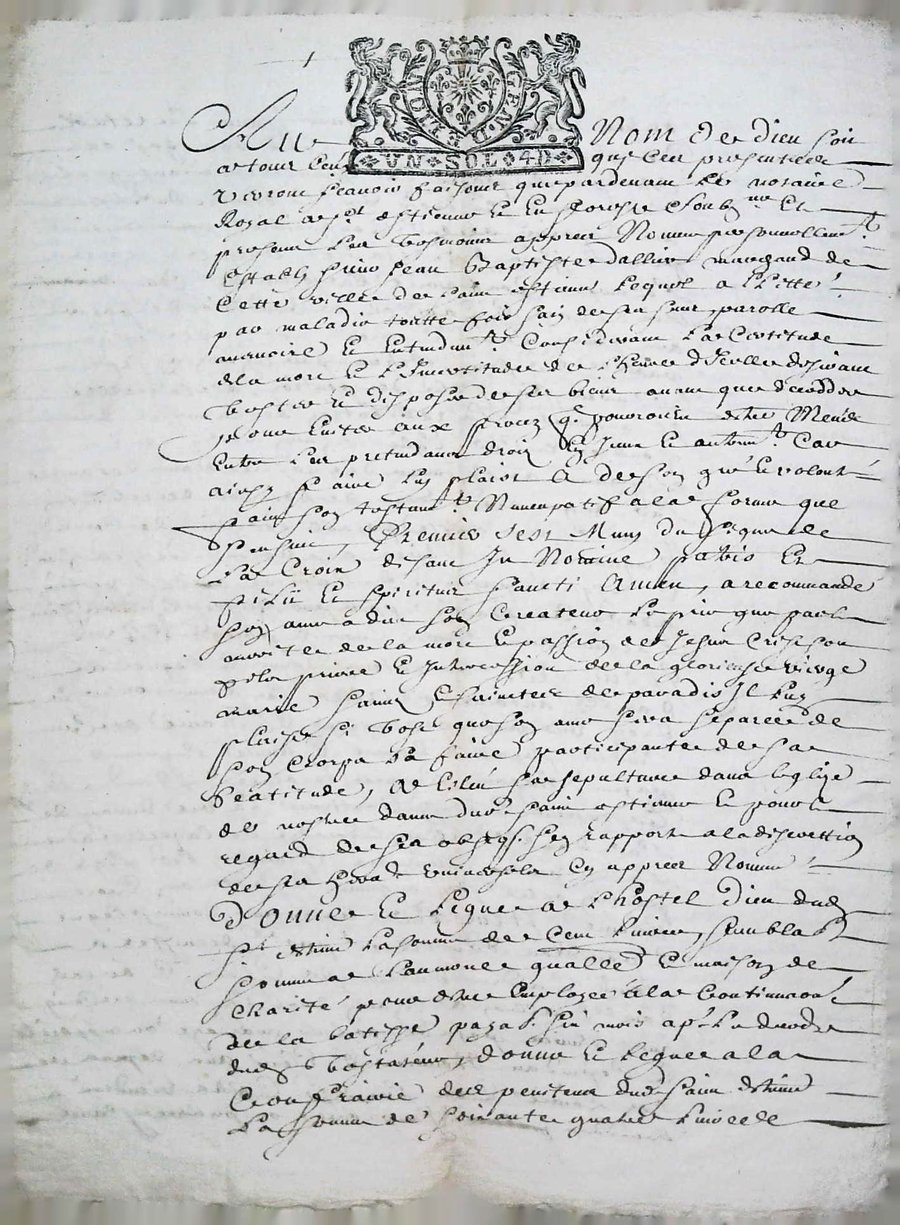 LION GENE
UN SOL 4D
Au Nom de dieu soit
a tous ceux que ces presentes
verront scavoir faisons que pardevant le notaire
Royal a St estienne et en forestz soubzne et
presens les tesmoins appres Nommes personnellemt
establi sieur Jean Baptiste dallier marchand de
Cette ville de saint estienne lequel a l'itte
par maladie toutte fois sain de ses sens, parolle
memoire et entendemt Considerant la Certitude
de la mort et l'Incertitude de l'heure d'Icelle desirant
tester et disposer de ses biens avant que deceddre
pour eviter aux proces q. pourroient estre Meüs
entre les pretendans droit en Iceux et autremt Car
ainsy faire luy plaist a de son gré et volonté
fait son testamt Nuncupatif a la forme que
sensuit, Premier s'est Muny du signe de
la Croix disant In Nomine patris et
filii et spiritus sancti Amen, a recommandé
son ame a dieu son Createur le prie que par le
merite de la mort et passion de Jesus Crist son
filz prieres et Intercession de la glorieuse vierge
marie saints et saintes de paradis Il luy
plaise si tost que son ame sera separée de
son Corps la faire participante de sa
beatitude, A eslu sa sepulture dans leglize
de nostre dame dud saint estienne et pour le
regard de ses obseqs. s'en rapporte a la discrettion
de son herede universelle cy appres Nommé
Donne et legue a l'hostel dieu dud
St estienne la somme de Cent livres, semblable
somme a laumone qualle et maison de
Charité pour estre employée a la Continuaon
de la batisse payab. six mois aps le deceds
dud testateur, donne et legue a la
Confrairie des penitens dud saint estienne
la somme de soixante quatre livres